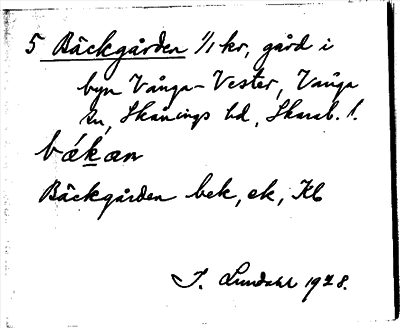 5 Bäckgården 1/1 kr, gård i
byn Vånga-Vester, Vånga
sn, Skånings hd, Skarab. l.
bákan
Bäckgården bek, ek, Kb
I. Lundahl 1928.